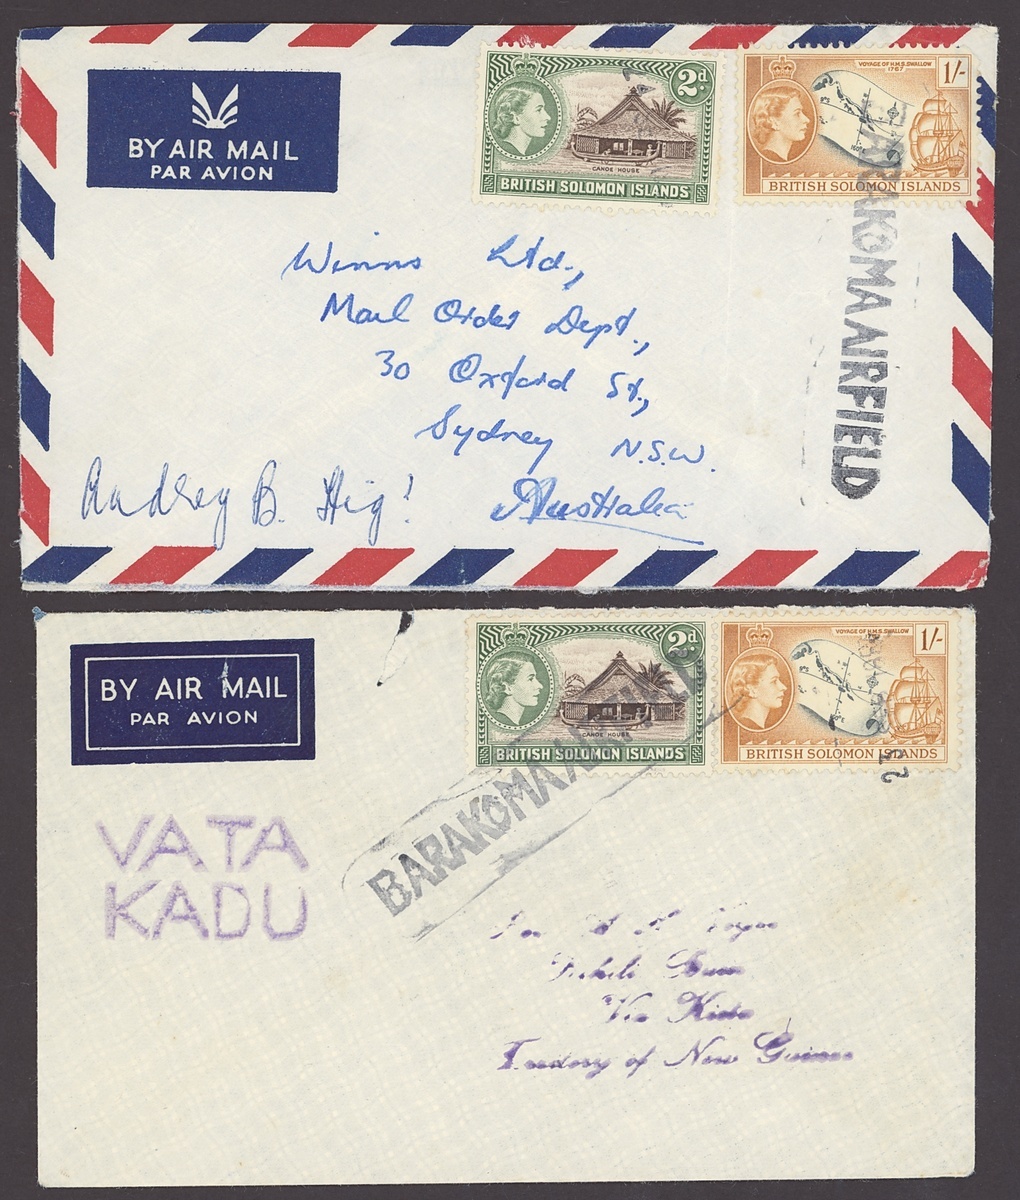 BY AIR MAIL
PAR AVION
2d
CANOE HOUSE
BRITISH SOLOMON ISLANDS
VOYAGE OF H.M.S. SWALLOW
1767
1/-
BRITISH SOLOMON ISLANDS
BARAKOMA AIRFIELD
Winns Ltd.,
Mail Order Dept.,
30 Oxford St.,
Sydney N.S.W.
Australia
Audrey B.
BY AIR MAIL
PAR AVION
2d
CANOE HOUSE
BRITISH SOLOMON ISLANDS
VOYAGE OF H.M.S. SWALLOW
1/-
BRITISH SOLOMON ISLANDS
BARAKOMA
VATA
KADU
Via Kieta
Territory of New Guinea